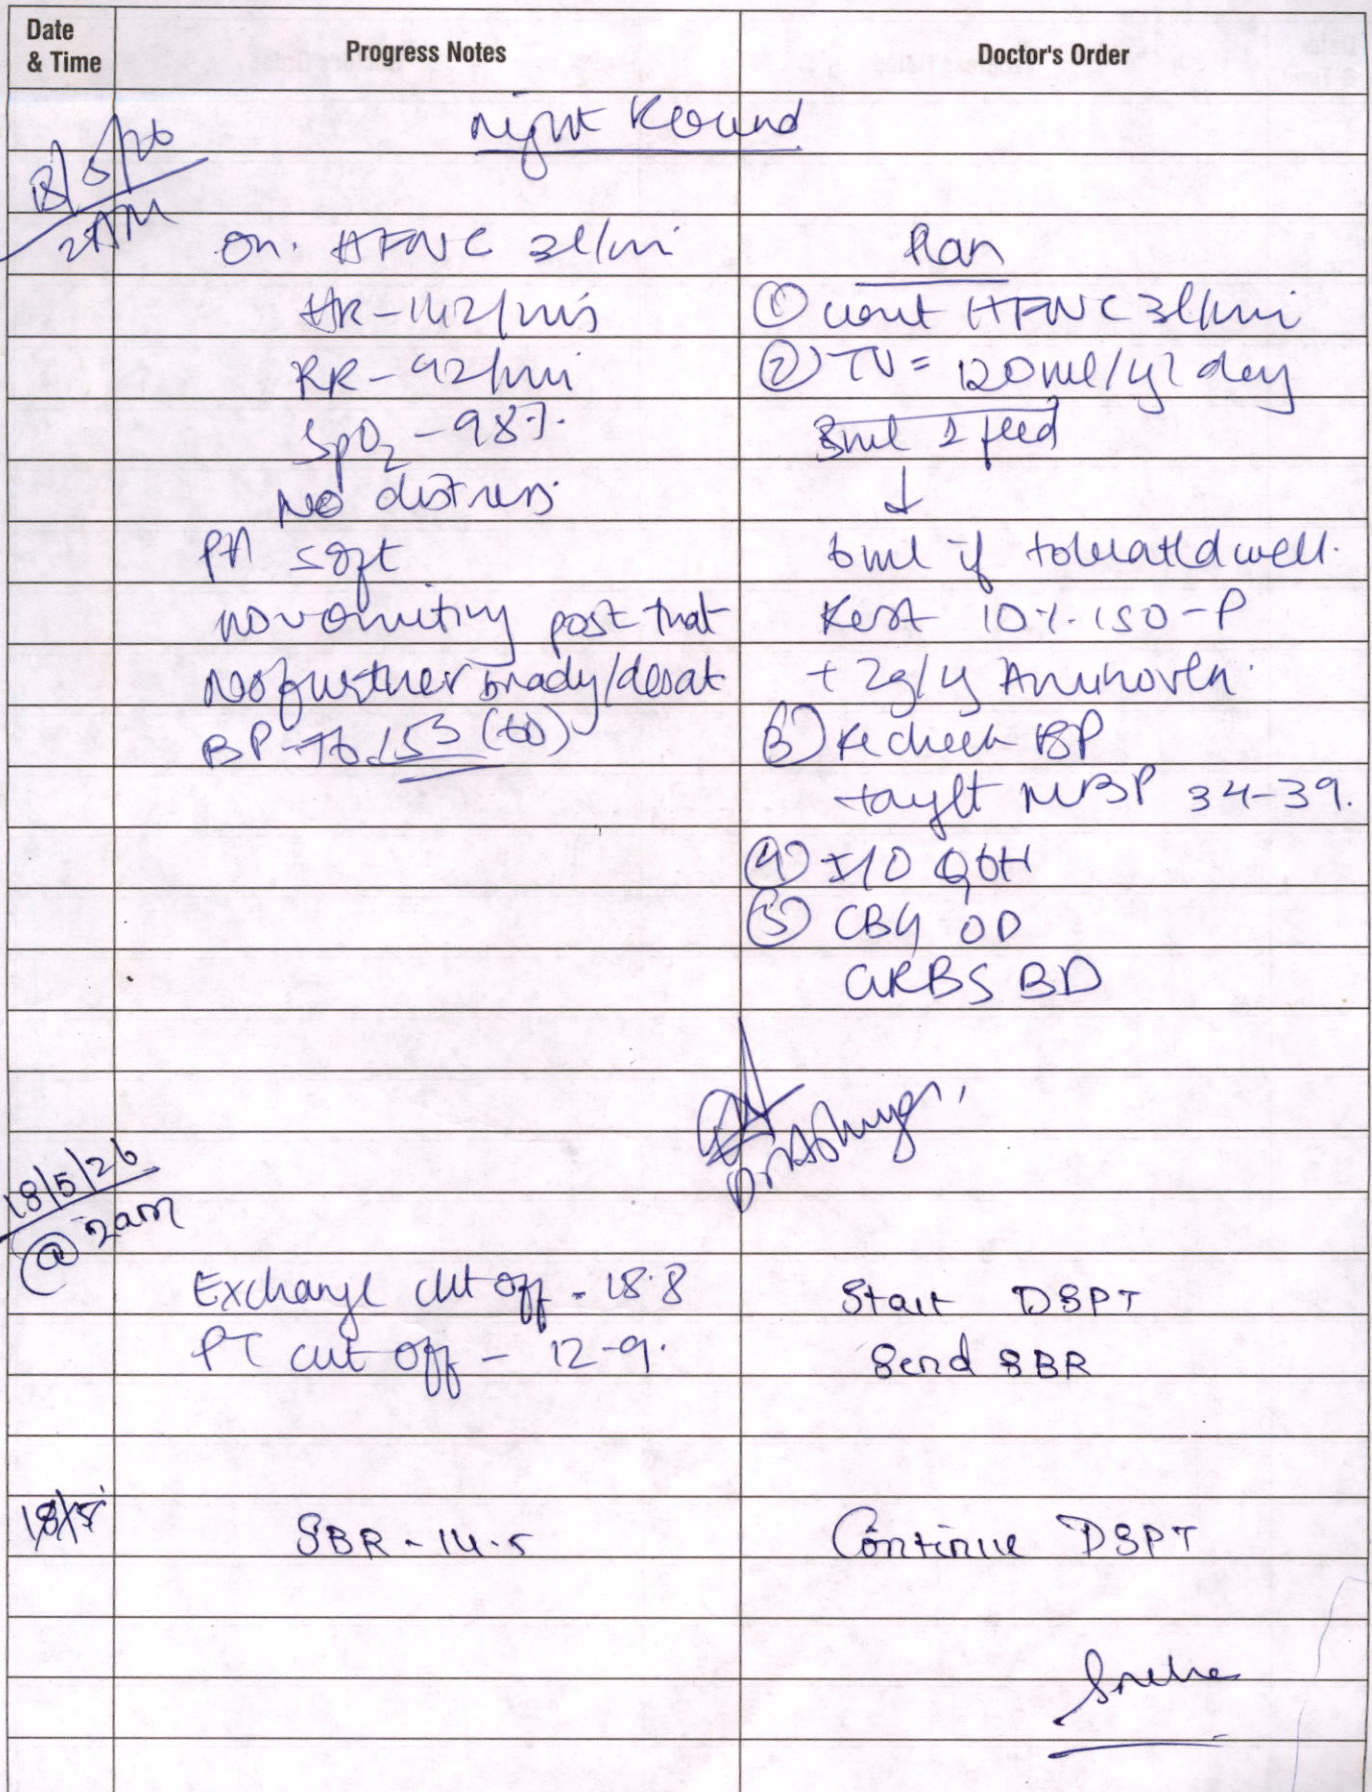 Date & Time
Progress Notes
Doctor's Order
Night Round
18/5/26
2AM
On. HFNC 3l/min
Plan
HR-142/min
① cont HFNC 3l/min
RR-42/min
② TV= 120ml/kg/day
SpO2 -98%.
3ml 1 feed
No distress.
↓
PA soft
6ml if tolerated well.
no vomiting post that
Rest 10% ISO-P
No further brady/desat
+ 2g/kg Aminoven.
BP-76/53 (60)
③ Recheck BP
target MBP 34-39.
④ I/O Q6H
⑤ CBG OD
GRBS BD
18/5/26
@ 2am
Exchange cut off - 18.8
Start DSPT
PT cut off - 12.9.
Send SBR
18/5
SBR - 14.5
Continue DSPT